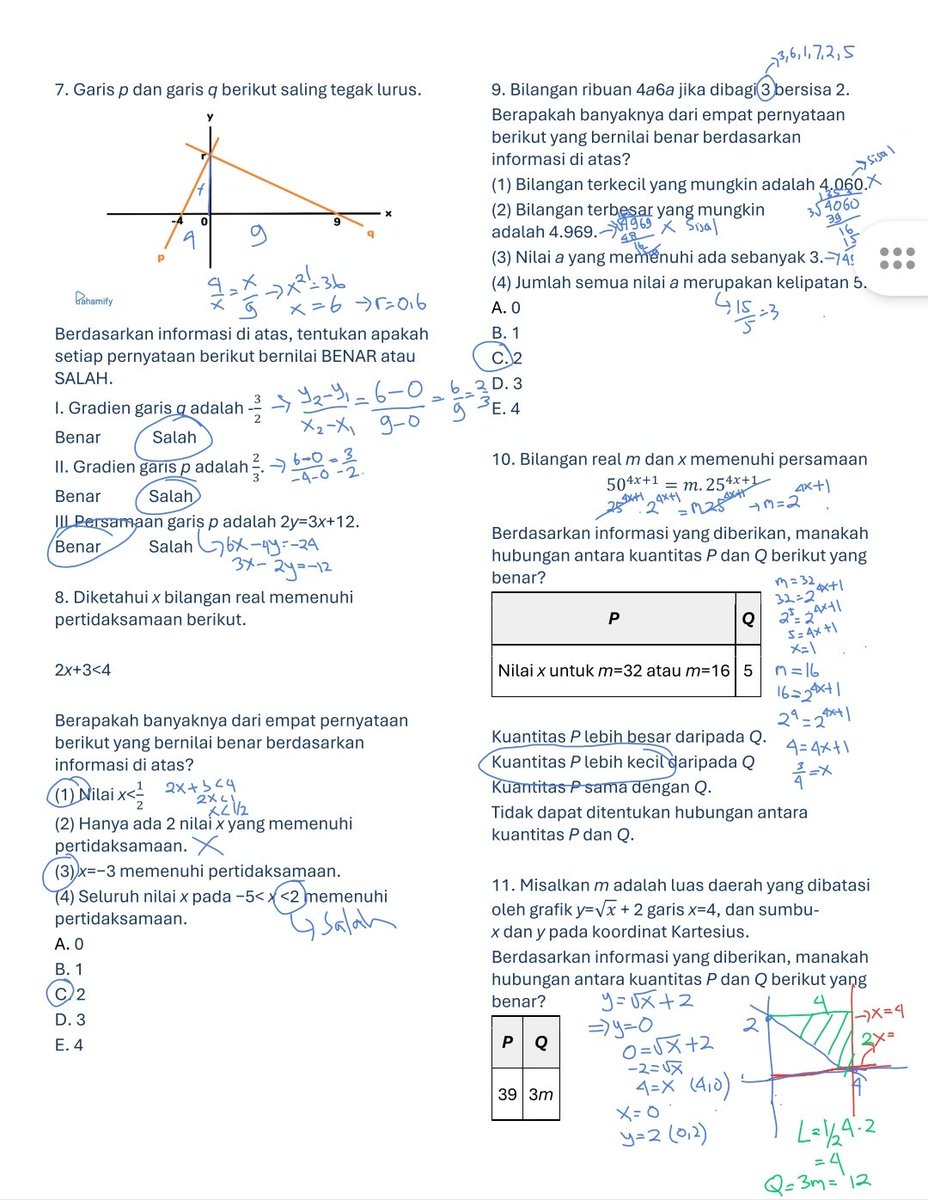 7. Garis p dan garis q berikut saling tegak lurus.
y
r
x
-4
0
9
x
4
9
q
p
4/x = x/9 → x² = 36
x = 6 → r = 0,6
Pahamify
Berdasarkan informasi di atas, tentukan apakah
setiap pernyataan berikut bernilai BENAR atau
SALAH.
I. Gradien garis q adalah -3/2 → y₂-y₁/x₂-x₁ = 6-0/9-0 = 6/9 = 2/3
Benar Salah
II. Gradien garis p adalah 2/3. → 6-0/-4-0 = 3/-2
Benar Salah
III Persamaan garis p adalah 2y=3x+12.
Benar Salah ↳ 6x-4y=-24
3x-2y=-12
8. Diketahui x bilangan real memenuhi
pertidaksamaan berikut.
2x+3<4
Berapakah banyaknya dari empat pernyataan
berikut yang bernilai benar berdasarkan
informasi di atas?
(1) Nilai x<1/2 2x+3<4
2x<1
x<1/2
(2) Hanya ada 2 nilai x yang memenuhi
pertidaksamaan. X
(3) x=−3 memenuhi pertidaksamaan.
(4) Seluruh nilai x pada −5< x <2 memenuhi
pertidaksamaan. ↳ Salah
A. 0
B. 1
C. 2
D. 3
E. 4
→3,6,1,7,2,5
9. Bilangan ribuan 4a6a jika dibagi 3 bersisa 2.
Berapakah banyaknya dari empat pernyataan
berikut yang bernilai benar berdasarkan
informasi di atas?
→ Sisa 1
(1) Bilangan terkecil yang mungkin adalah 4.060. X
3 4060
39
16
15
(2) Bilangan terbesar yang mungkin
adalah 4.969. → 4969 X Sisa 1
48
(3) Nilai a yang memenuhi ada sebanyak 3.
(4) Jumlah semua nilai a merupakan kelipatan 5.
↳ 15/5 = 3
A. 0
B. 1
C. 2
D. 3
E. 4
10. Bilangan real m dan x memenuhi persamaan
50⁴ˣ⁺¹ = m. 25⁴ˣ⁺¹
25⁴ˣ⁺¹ · 2⁴ˣ⁺¹ = m 25⁴ˣ⁺¹ → m = 2⁴ˣ⁺¹
Berdasarkan informasi yang diberikan, manakah
hubungan antara kuantitas P dan Q berikut yang
benar?
P Q
Nilai x untuk m=32 atau m=16 5
m=32
32=2⁴ˣ⁺¹
2⁵=2⁴ˣ⁺¹
5=4x+1
x=1
m=16
16=2⁴ˣ⁺¹
2⁴=2⁴ˣ⁺¹
4=4x+1
3/4=x
Kuantitas P lebih besar daripada Q.
Kuantitas P lebih kecil daripada Q
Kuantitas P sama dengan Q.
Tidak dapat ditentukan hubungan antara
kuantitas P dan Q.
11. Misalkan m adalah luas daerah yang dibatasi
oleh grafik y=√x + 2 garis x=4, dan sumbu-
x dan y pada koordinat Kartesius.
Berdasarkan informasi yang diberikan, manakah
hubungan antara kuantitas P dan Q berikut yang
benar?
P Q
39 3m
y=√x+2
⇒y=0
0=√x+2
-2=√x
4=x (4,0)
x=0
y=2 (0,2)
4
2
→x=4
2
x=
4
L=1/2 4·2
=4
Q=3m=12